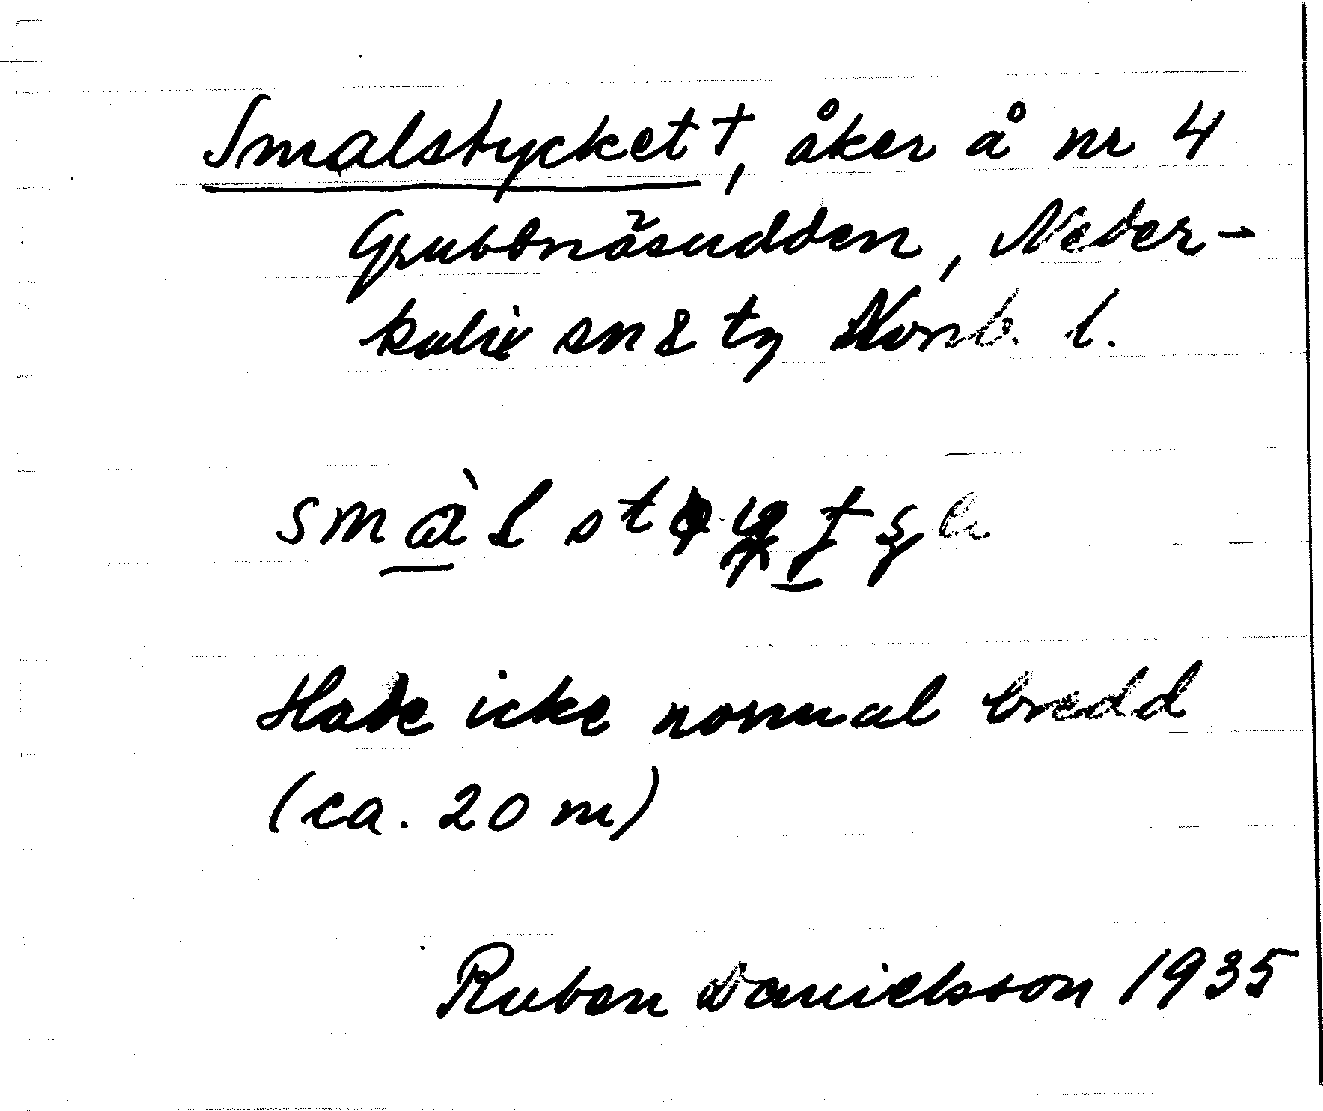 Smalstycket †, åker å nr 4
Grubbnäsudden, Neder-
kalix sn & tg Norrb. l.
Hade icke normal bredd
(ca. 20 m)
Ruben Danielsson 1935